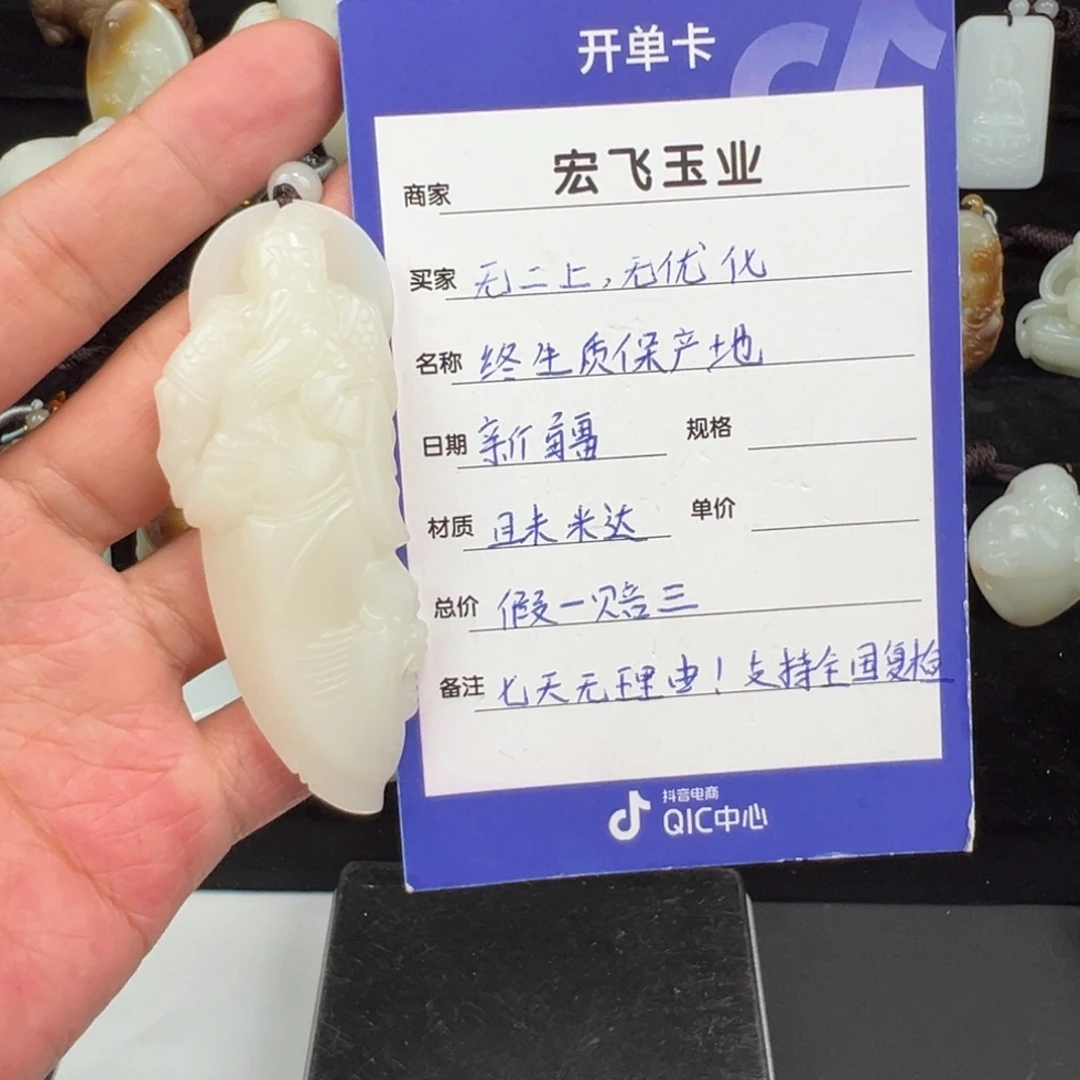 开单卡
商家 宏飞玉业
买家 无二上,无优化
名称 终生质保产地
日期 新疆 规格
材质 且末米达 单价
总价 假一赔三
备注 七天无理由!支持全国复检
抖音电商
QIC中心